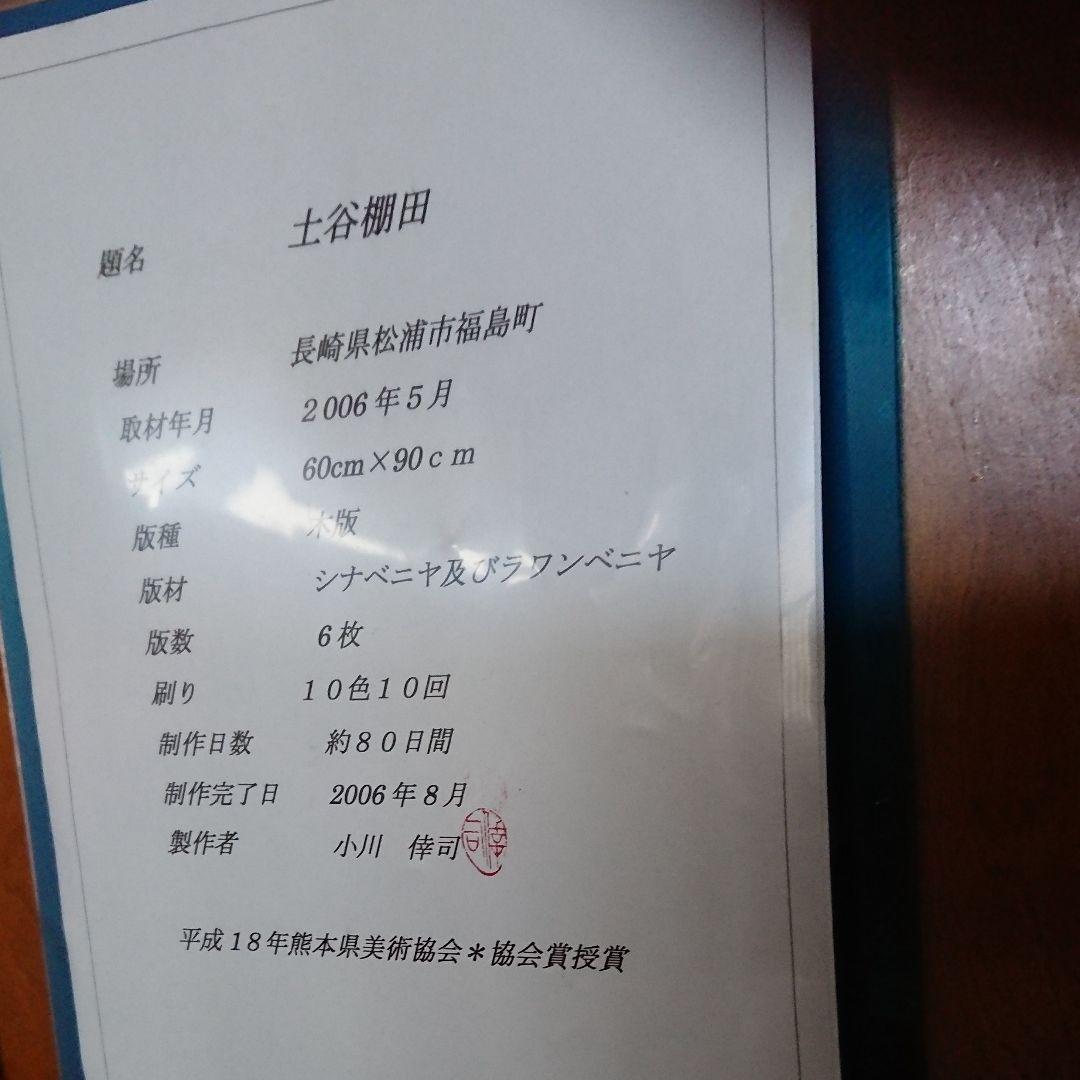 題名 土谷棚田
場所 長崎県松浦市福島町
取材年月 2006年5月
サイズ 60cm×90cm
版種 木版
版材 シナベニヤ及びラワンベニヤ
版数 6枚
刷り 10色10回
制作日数 約80日間
制作完了日 2006年8月
製作者 小川 倖司
平成18年熊本県美術協会*協会賞授賞